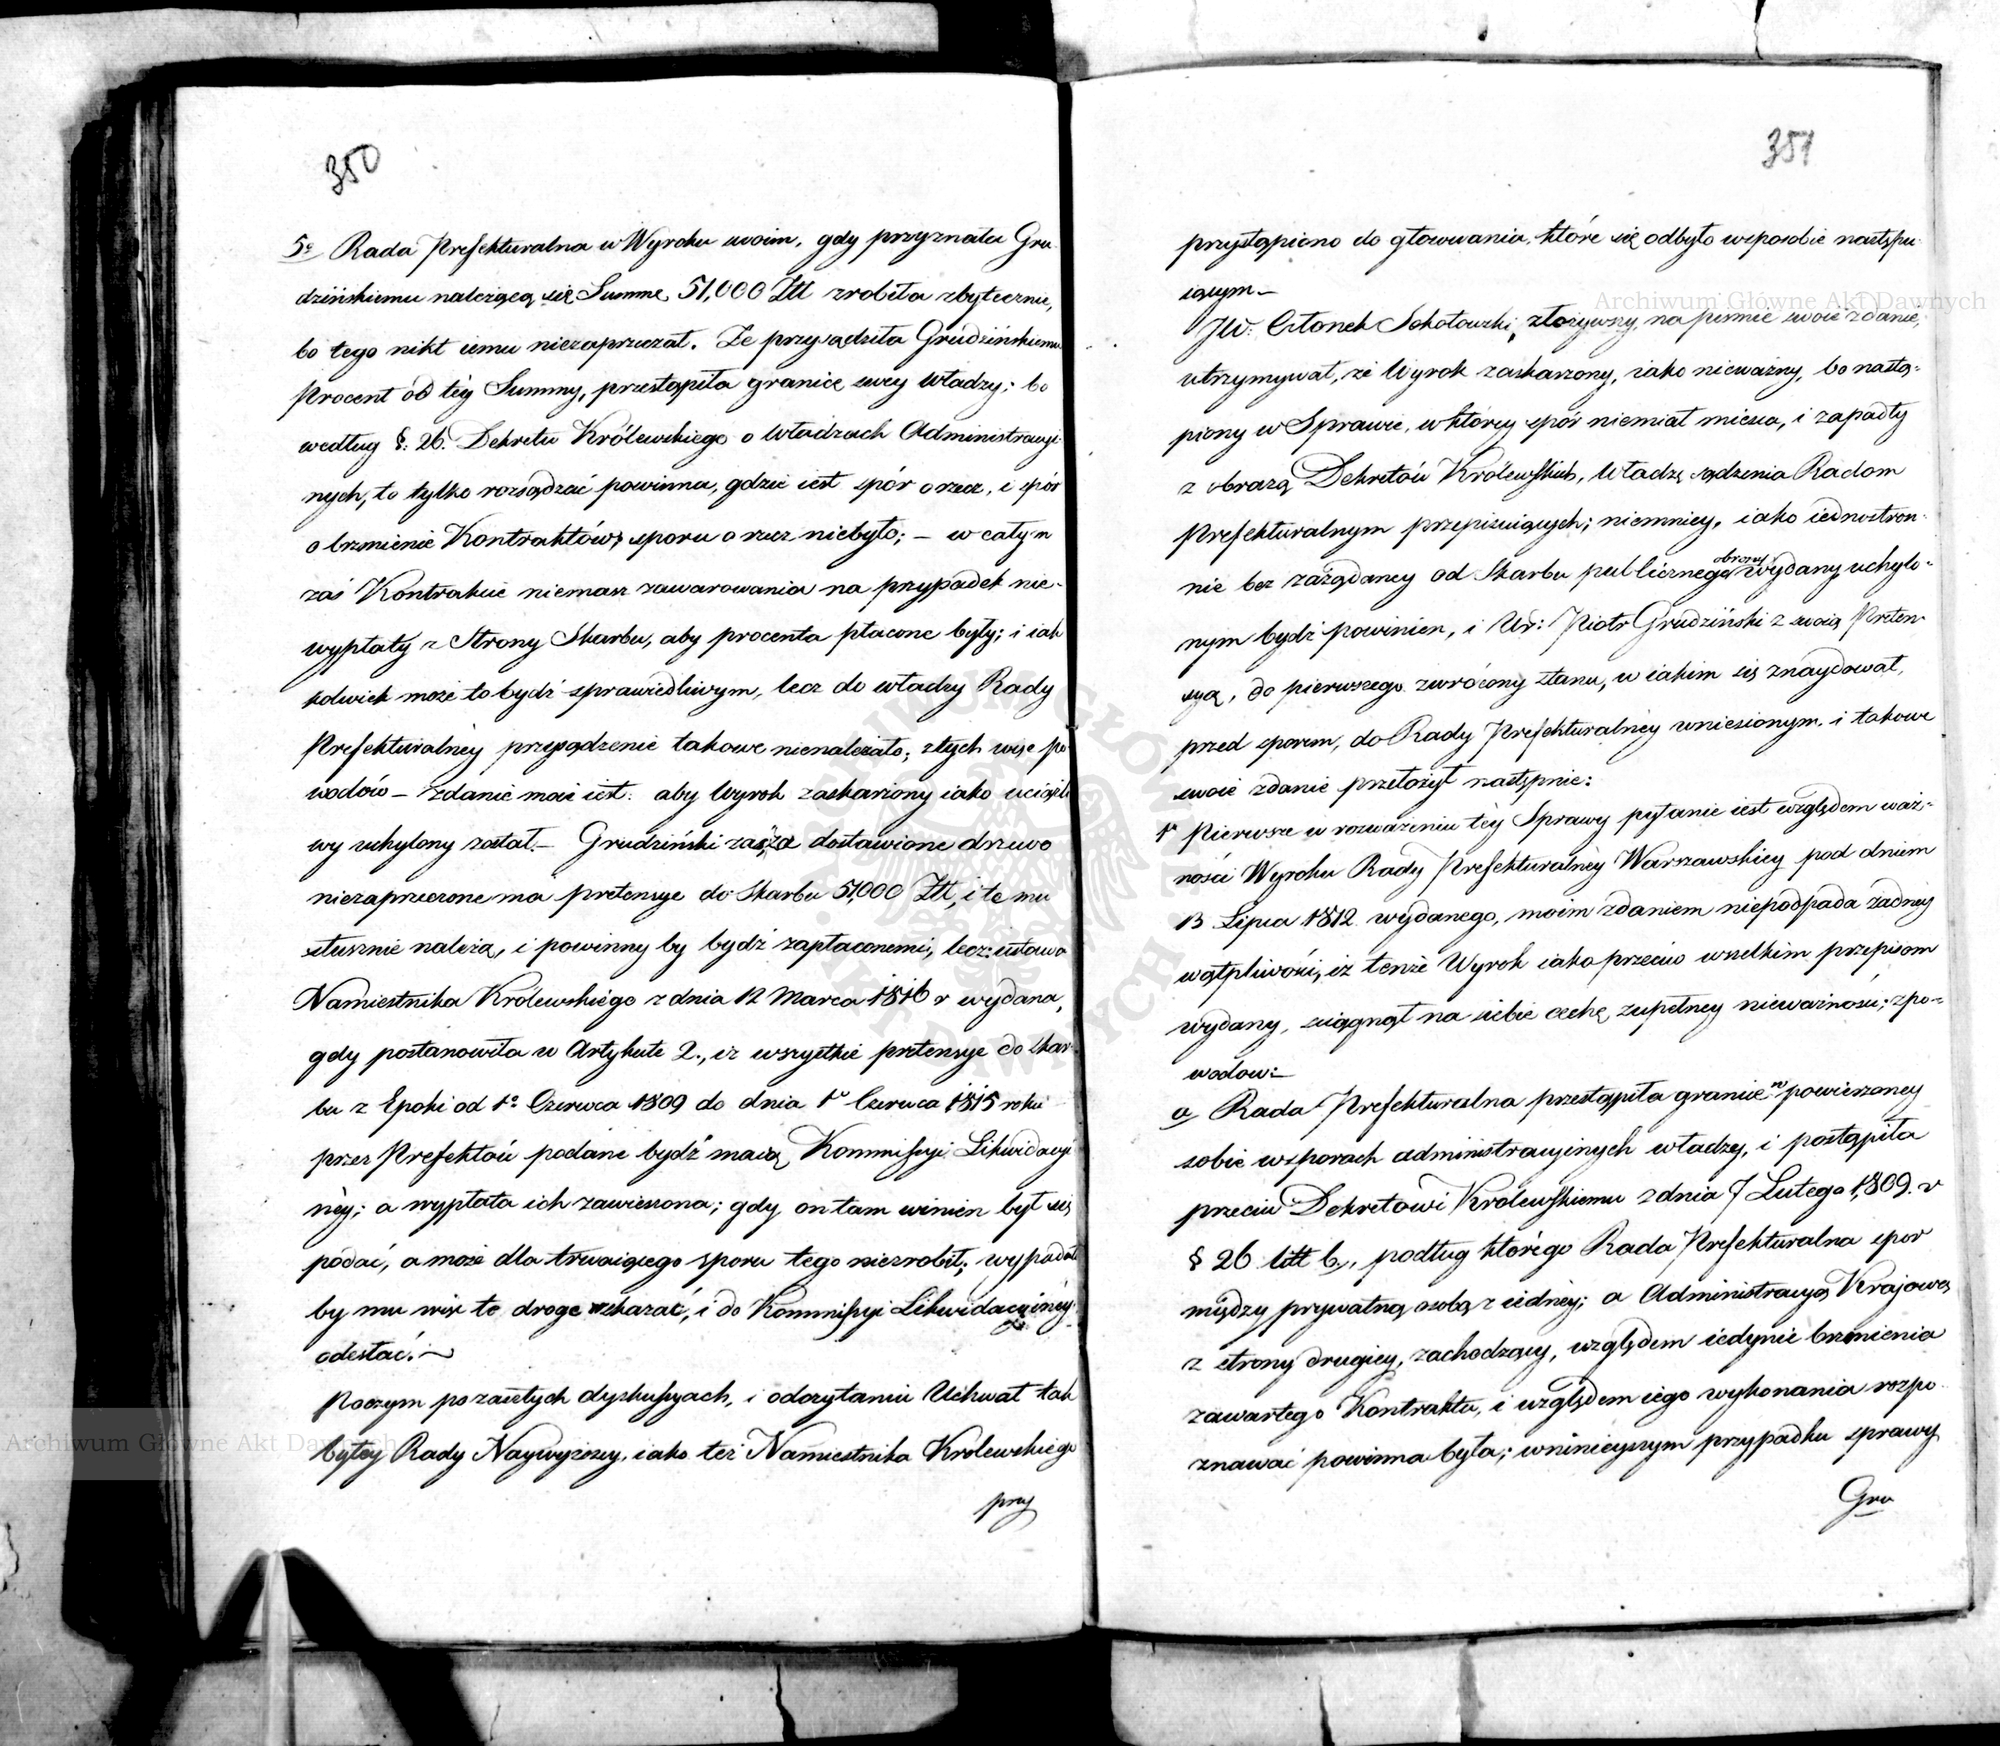 350
5º Rada Prefekturalna w Wyroku swoim, gdy przyznała Gru
dzińskiemu należącą się Summę 51,000 Złł zrobiła zbytecznie,
bo tego nikt iemu niezaprzeczał. Że przysądziła Grudzińskiemu
Procent od téy Summy, przestąpiła granicę swey Władzy; bo
według §: 26. Dekretu Królewskiego o Władzach Administracyi
nych, to tylko rozsądzać powinna, gdzie iest spór o rzecz, i spór
o brzmienie Kontraktów; sporu o rzecz niebyło; – w całym
zaś Kontrakcie niemasz zawarowania na przypadek nie-
wypłaty z Strony Skarbu, aby procenta płacone były; i iak
kolwiek może to bydź sprawiedliwym, lecz do władzy Rady
Prefekturalnéy przysądzenie takowe nienależało; z tych więc po
wodów – zdanie moie iest: aby Wyrok zaskarżony iako uciążli
wy uchylony został. – Grudziński zaś za dostawione drzewo
niezaprzeczone ma pretensye do Skarbu 51,000 Złł, i te mu
słusznie należą, i powinny by bydź zapłaconemi, lecz ustawa
Namiestnika Królewskiego z dnia 12 Marca 1816 r wydana,
gdy postanowiła w Artykule 2., iż wszystkie pretensye do Skar-
bu z Epoki od 1º Czerwca 1809 do dnia 1º Czerwca 1815 roku
przez Prefektów podane bydź maią Kommissyi Likwidacyi
néy; a wypłata ich zawieszona; gdy on tam winien był się
podać, a może dla trwaiącego sporu tego niezrobił; wypadało
by mu więc tę drogę wskazać, i do Kommissyi Likwidacyinéy
odesłać. –
Poczym po zaszłych dyskussyach, i odczytaniu Uchwał tak
byłey Rady Naywyższey, iako też Namiestnika Królewskiego
przy
351
przystąpiono do głosowania, które się odbyło w sposobie następu-
iącym –
JW. Członek Sokołowski, złożywszy na piśmie swoie zdanie,
utrzymywał, że Wyrok zaskarżony, iako nieważny, bo nastą-
piony w Sprawie, w którey spór niemiał mieysca, i zapadły
z obrazą Dekretów Królewskich, Władzę sądzenia Radom
Prefekturalnym przepisuiących; niemniey, iako iednostron-
nie bez zażądaney od Skarbu publicznego obrony wydany, uchylo-
nym bydź powinien, i Ur: Piotr Grudziński z swoią Preten-
syą, do pierwszego zwrócony stanu, w iakim się znaydował,
przed sporem, do Rady Prefekturalnéy wniesionym. i takowe
swoie zdanie przełożył następnie:
1º Pierwsze w rozważeniu téy Sprawy pytanie iest względem waż-
ności Wyroku Rady Prefekturalnéy Warszawskiey pod dniem
13 Lipca 1812 wydanego, moim zdaniem niepodpada żadney
wątpliwości, iż tenże Wyrok iako przeciw wszelkim przepisom
wydany, ściągnął na siebie cechę zupełney nieważności; z po-
wodów: –
a Rada Prefekturalna przestąpiła granice powierzoney
sobie w sporach administracyinych władzy, i postąpiła
przeciw Dekretowi Królewskiemu z dnia 7 Lutego 1,809. r
§ 26 litt b., podług którego Rada Prefekturalna spor
między prywatną osobą z iedney; a Administracyą Kraiową
z strony drugiey, zachodzący, względem iedynie brzmienia
zawartego Kontraktu, i względem iego wykonania rozpo-
znawać powinna była; w ninieyszym przypadku sprawy
Gru
Archiwum Główne Akt Dawnych
Archiwum Główne Akt Dawnych
ARCHIWUM GŁÓWNE AKT DAWNYCH